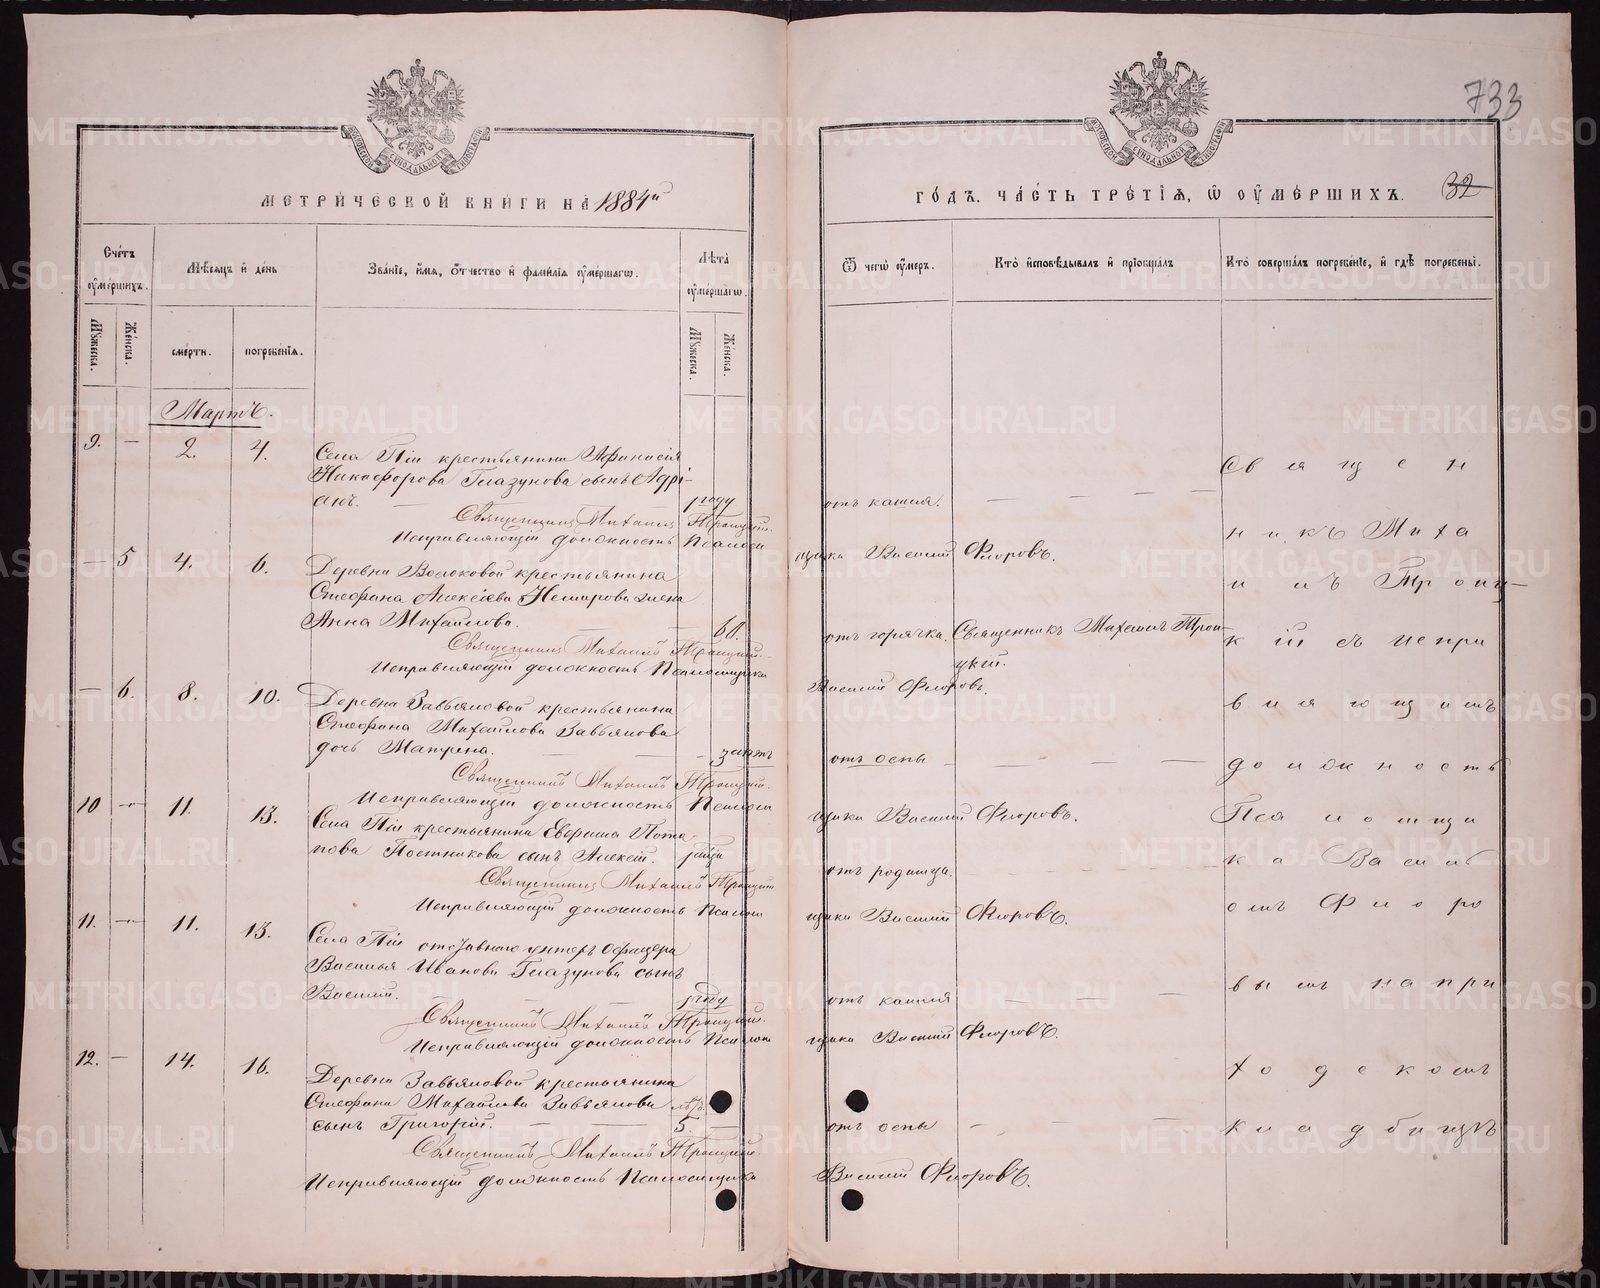 733
МЕТРИЧЕСКОЙ КНИГИ НА 1884й
ГОДЪ. ЧАСТЬ ТРЕТІЯ, Ѿ ОУМЕРШИХЪ.
32
Счетъ оумершихъ.
Мѣсяцъ и день
Званіе, имя, отчество и фамилія оумершагѡ.
Лѣта оумершагѡ.
Ѿ чегѡ оумеръ.
Кто исповѣдывалъ и пріобщалъ
Кто совершалъ погребеніе, и гдѣ погребены.
Мужеска.
Женска.
смерти.
погребенія.
Мужеска.
Женска.
Мартъ.
9. — 2. 4.
Села Піи крестьянина Афанасія
Никифорова Глазунова сынъ Адрі-
анъ. — 1 году
отъ кашля. — — — —
Священникъ Михаилъ Троицкій.
Исправляющій должность Псаломщика Василій Флоровъ.
— 5 4. 6.
Деревни Волоковой крестьянина
Стефана Алексіева жена
Анна Михайлова. — — 60.
отъ горячки. Священникъ Михаилъ Трои-
цкій.
Священникъ Михаилъ Троицкій.
Исправляющій должность Псаломщика Василій Флоровъ.
— 6. 8. 10.
Деревни Завьяловой крестьянина
Стефана Михайлова Завьялова
дочь Матрена. — —
отъ оспы — — — —
Священникъ Михаилъ Троицкій.
Исправляющій должность Псаломщика Василій Флоровъ.
10 — 11. 13.
Села Піи крестьянина Пота-
пова Постникова сынъ Алексій.
отъ родимца.
Священникъ Михаилъ Троицкій
Исправляющій должность Псаломщика Василій Флоровъ.
11. — 11. 13.
Села Піи отставнаго унтеръ офицера
Василья Иванова Глазунова сынъ
Василій. — — 1 году
отъ кашля — — —
Священникъ Михаилъ Троицкій.
Исправляющій должность Псаломщика Василій Флоровъ.
12. — 14. 16.
Деревни Завьяловой крестьянина
Стефана Михайлова Завьялова
сынъ Григорій. — — 5. —
отъ оспы — — —
Священникъ Михаилъ Троицкій.
Исправляющій должность Псаломщика Василій Флоровъ.
Священ
никъ Миха
илъ Троиц-
кій съ испра
вляющимъ
должность
Псаломщи
ка Василі
емъ Флоро
вымъ на при
ходскомъ
кладбищѣ
METRIKI.GASO-URAL.RU